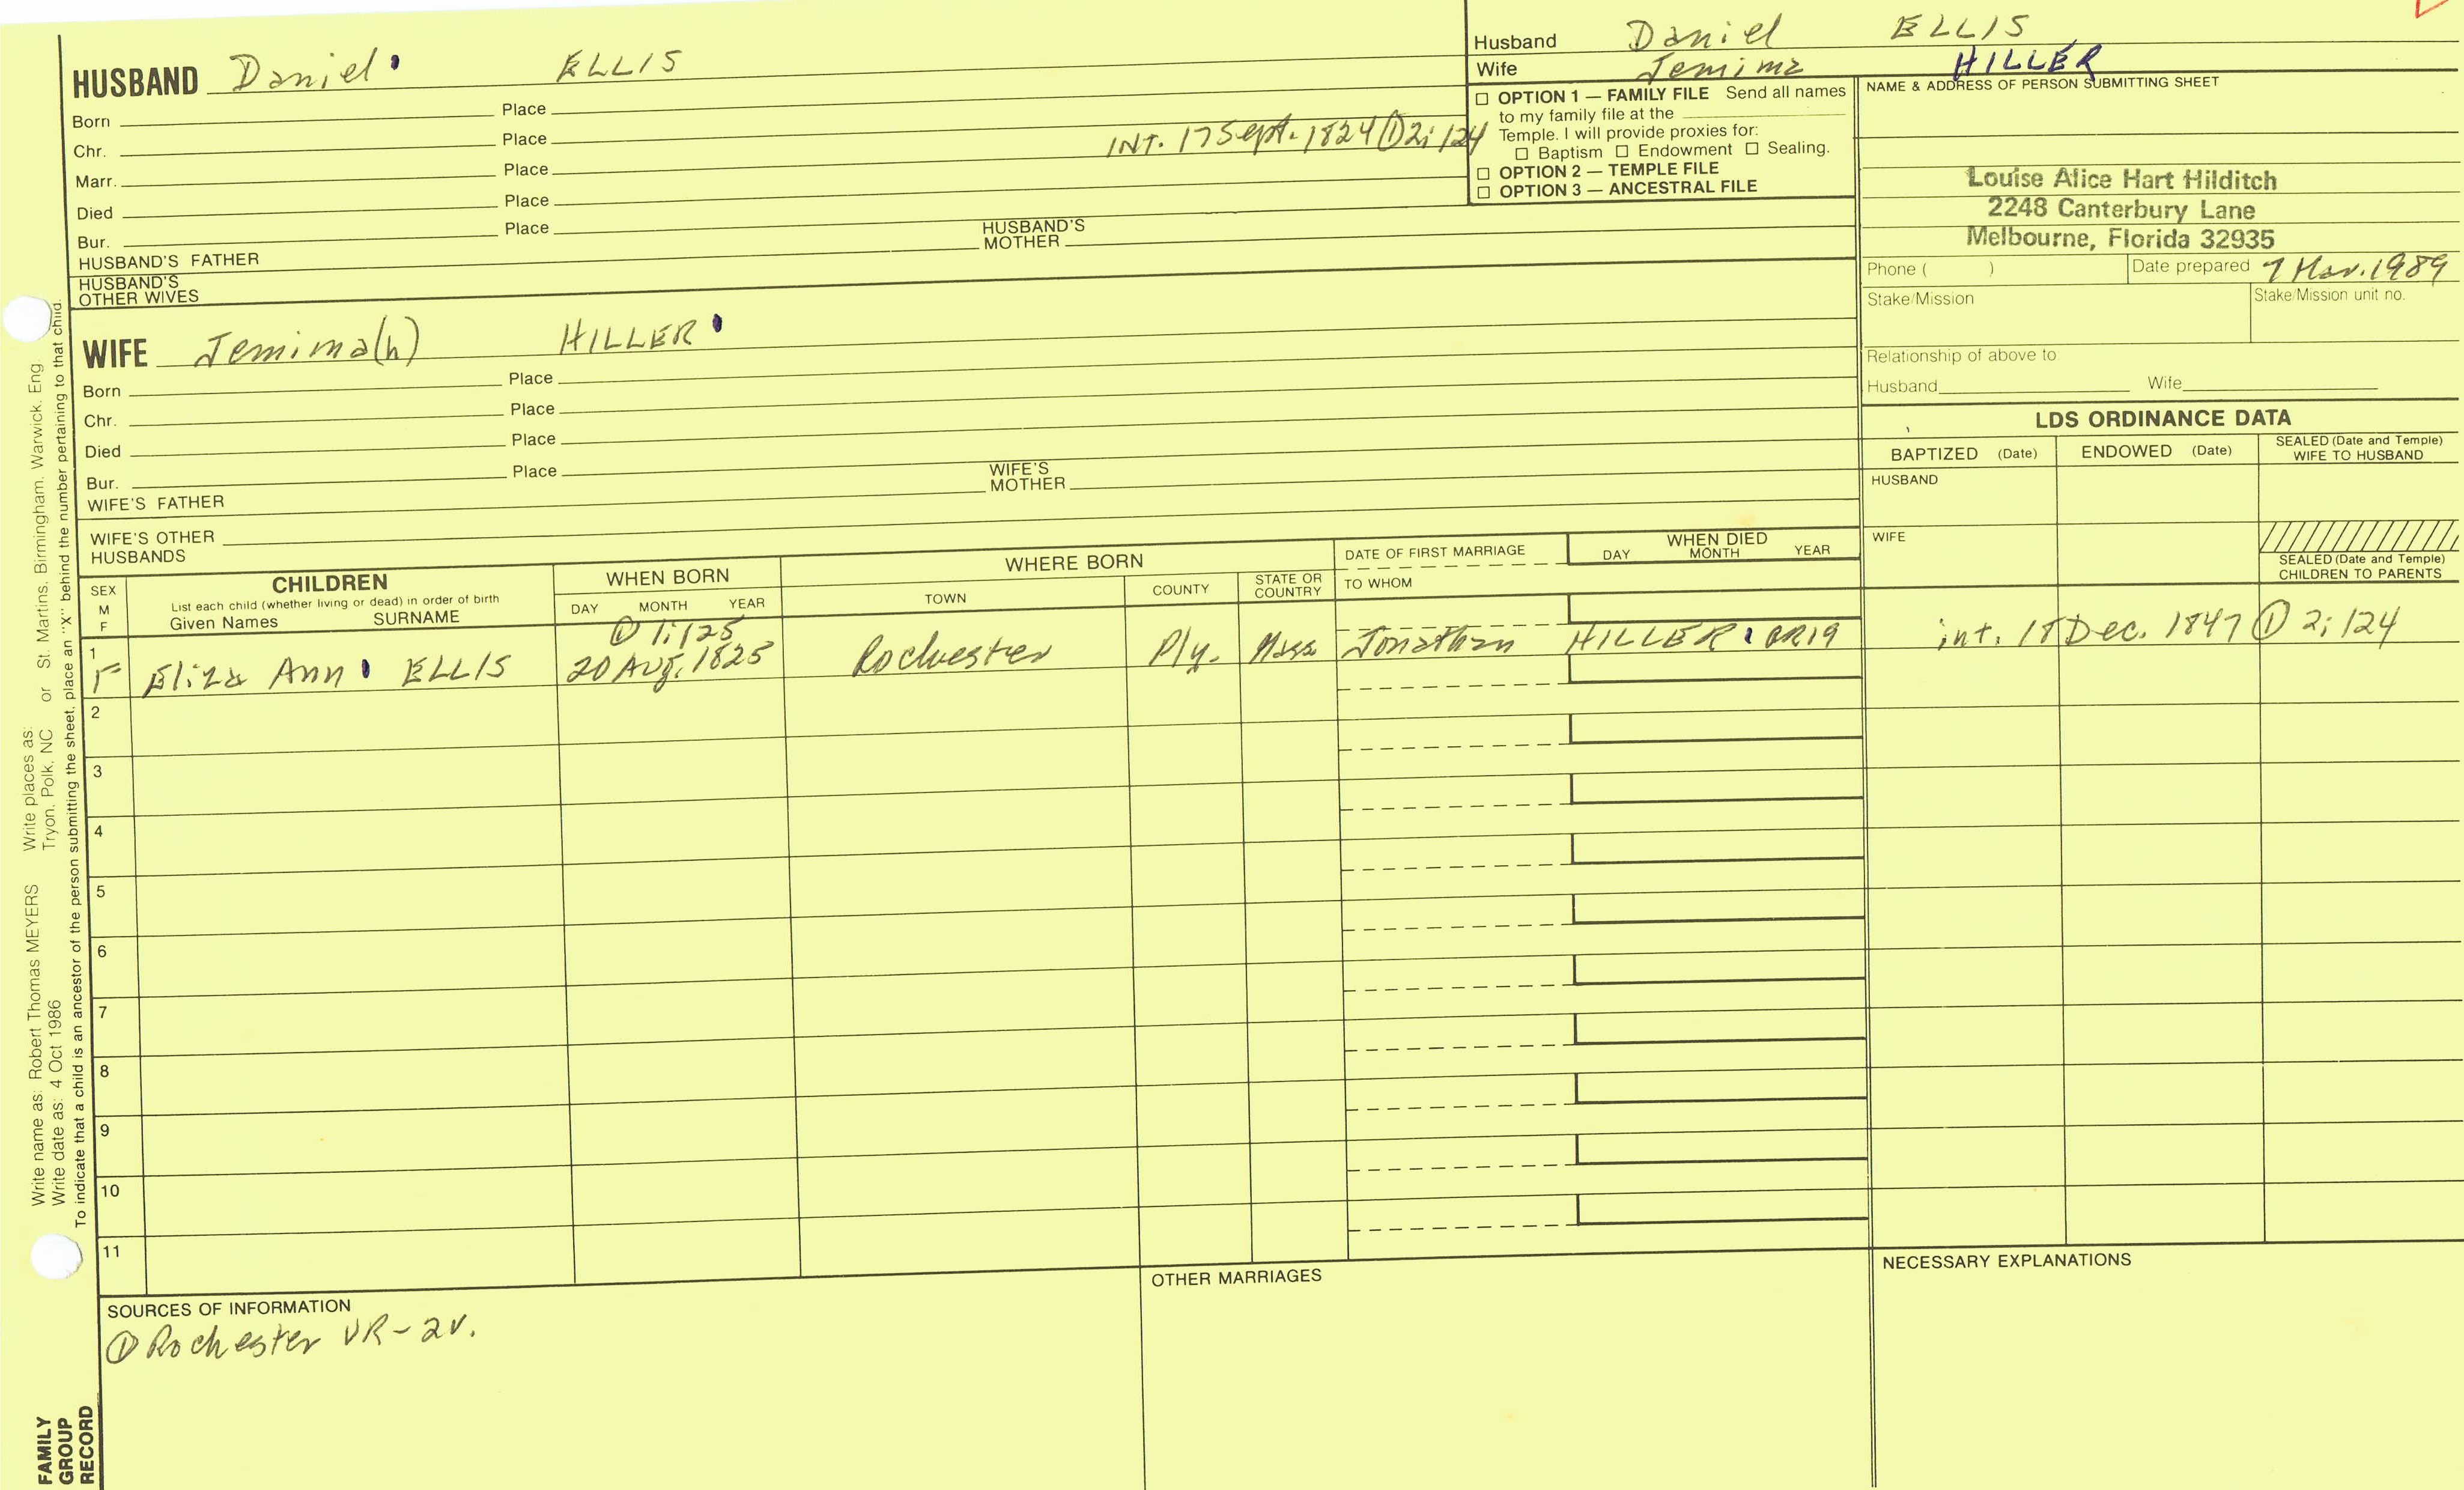 HUSBAND Daniel ELLIS
Born Place
Chr. Place
INT. 17 Sept. 1824 ① 2; 124
Marr. Place
Died Place
Bur. Place
HUSBAND'S FATHER HUSBAND'S MOTHER
HUSBAND'S OTHER WIVES
Husband Daniel ELLIS
Wife Jemima HILLER
☐ OPTION 1 — FAMILY FILE Send all names
to my family file at the
Temple. I will provide proxies for:
☐ Baptism ☐ Endowment ☐ Sealing.
☐ OPTION 2 — TEMPLE FILE
☐ OPTION 3 — ANCESTRAL FILE
NAME & ADDRESS OF PERSON SUBMITTING SHEET
Louise Alice Hart Hilditch
2248 Canterbury Lane
Melbourne, Florida 32935
Phone ( ) Date prepared 7 Mar. 1989
Stake/Mission Stake/Mission unit no.
Relationship of above to
Husband Wife
WIFE Jemima(h) HILLER
Born Place
Chr. Place
Died Place
Bur. Place
WIFE'S FATHER WIFE'S MOTHER
WIFE'S OTHER HUSBANDS
LDS ORDINANCE DATA
BAPTIZED (Date) ENDOWED (Date) SEALED (Date and Temple) WIFE TO HUSBAND
HUSBAND
WIFE
SEALED (Date and Temple) CHILDREN TO PARENTS
SEX M F
CHILDREN
List each child (whether living or dead) in order of birth
Given Names SURNAME
WHEN BORN
DAY MONTH YEAR
WHERE BORN
TOWN COUNTY STATE OR COUNTRY
DATE OF FIRST MARRIAGE
TO WHOM
WHEN DIED
DAY MONTH YEAR
① 1; 125
1 F Eliza Ann ELLIS 20 Aug. 1825 Rochester Ply. Mass Jonathan HILLER OR19 int. 18 Dec. 1847 ① 2; 124
2
3
4
5
6
7
8
9
10
11
SOURCES OF INFORMATION
① Rochester VR - 2v.
OTHER MARRIAGES
NECESSARY EXPLANATIONS
Write name as: Robert Thomas MEYERS Write places as:
Write date as: 4 Oct 1986 Tryon, Polk, NC or St. Martins, Birmingham, Warwick, Eng.
To indicate that a child is an ancestor of the person submitting the sheet, place an "X" behind the number pertaining to that child.
FAMILY
GROUP
RECORD